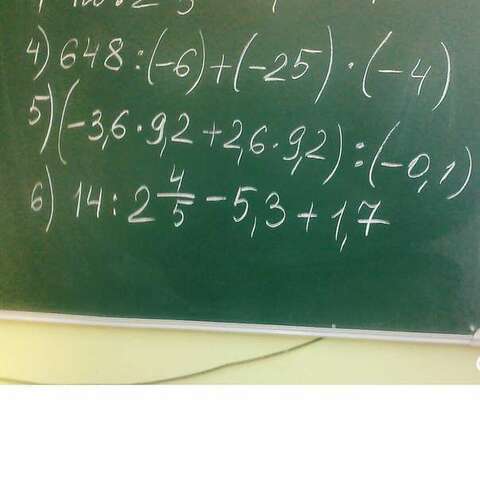 4) 648 : (-6) + (-25) · (-4)
5) (-3,6 · 9,2 + 2,6 · 9,2) : (-0,1)
6) 14 : 2 4/5 - 5,3 + 1,7